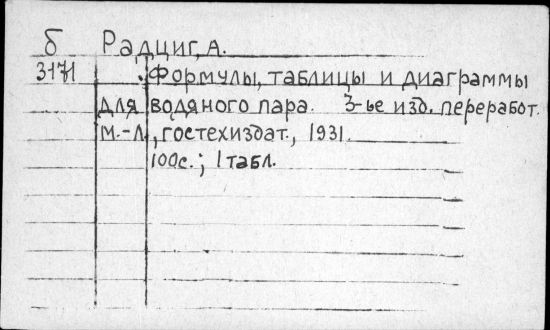 б Радциг, А.
3171 Формулы, таблицы и диаграммы
для водяного пара. 3-ье изд. переработ.
М.-Л., гостехиздат., 1931.
100с.; 1 табл.